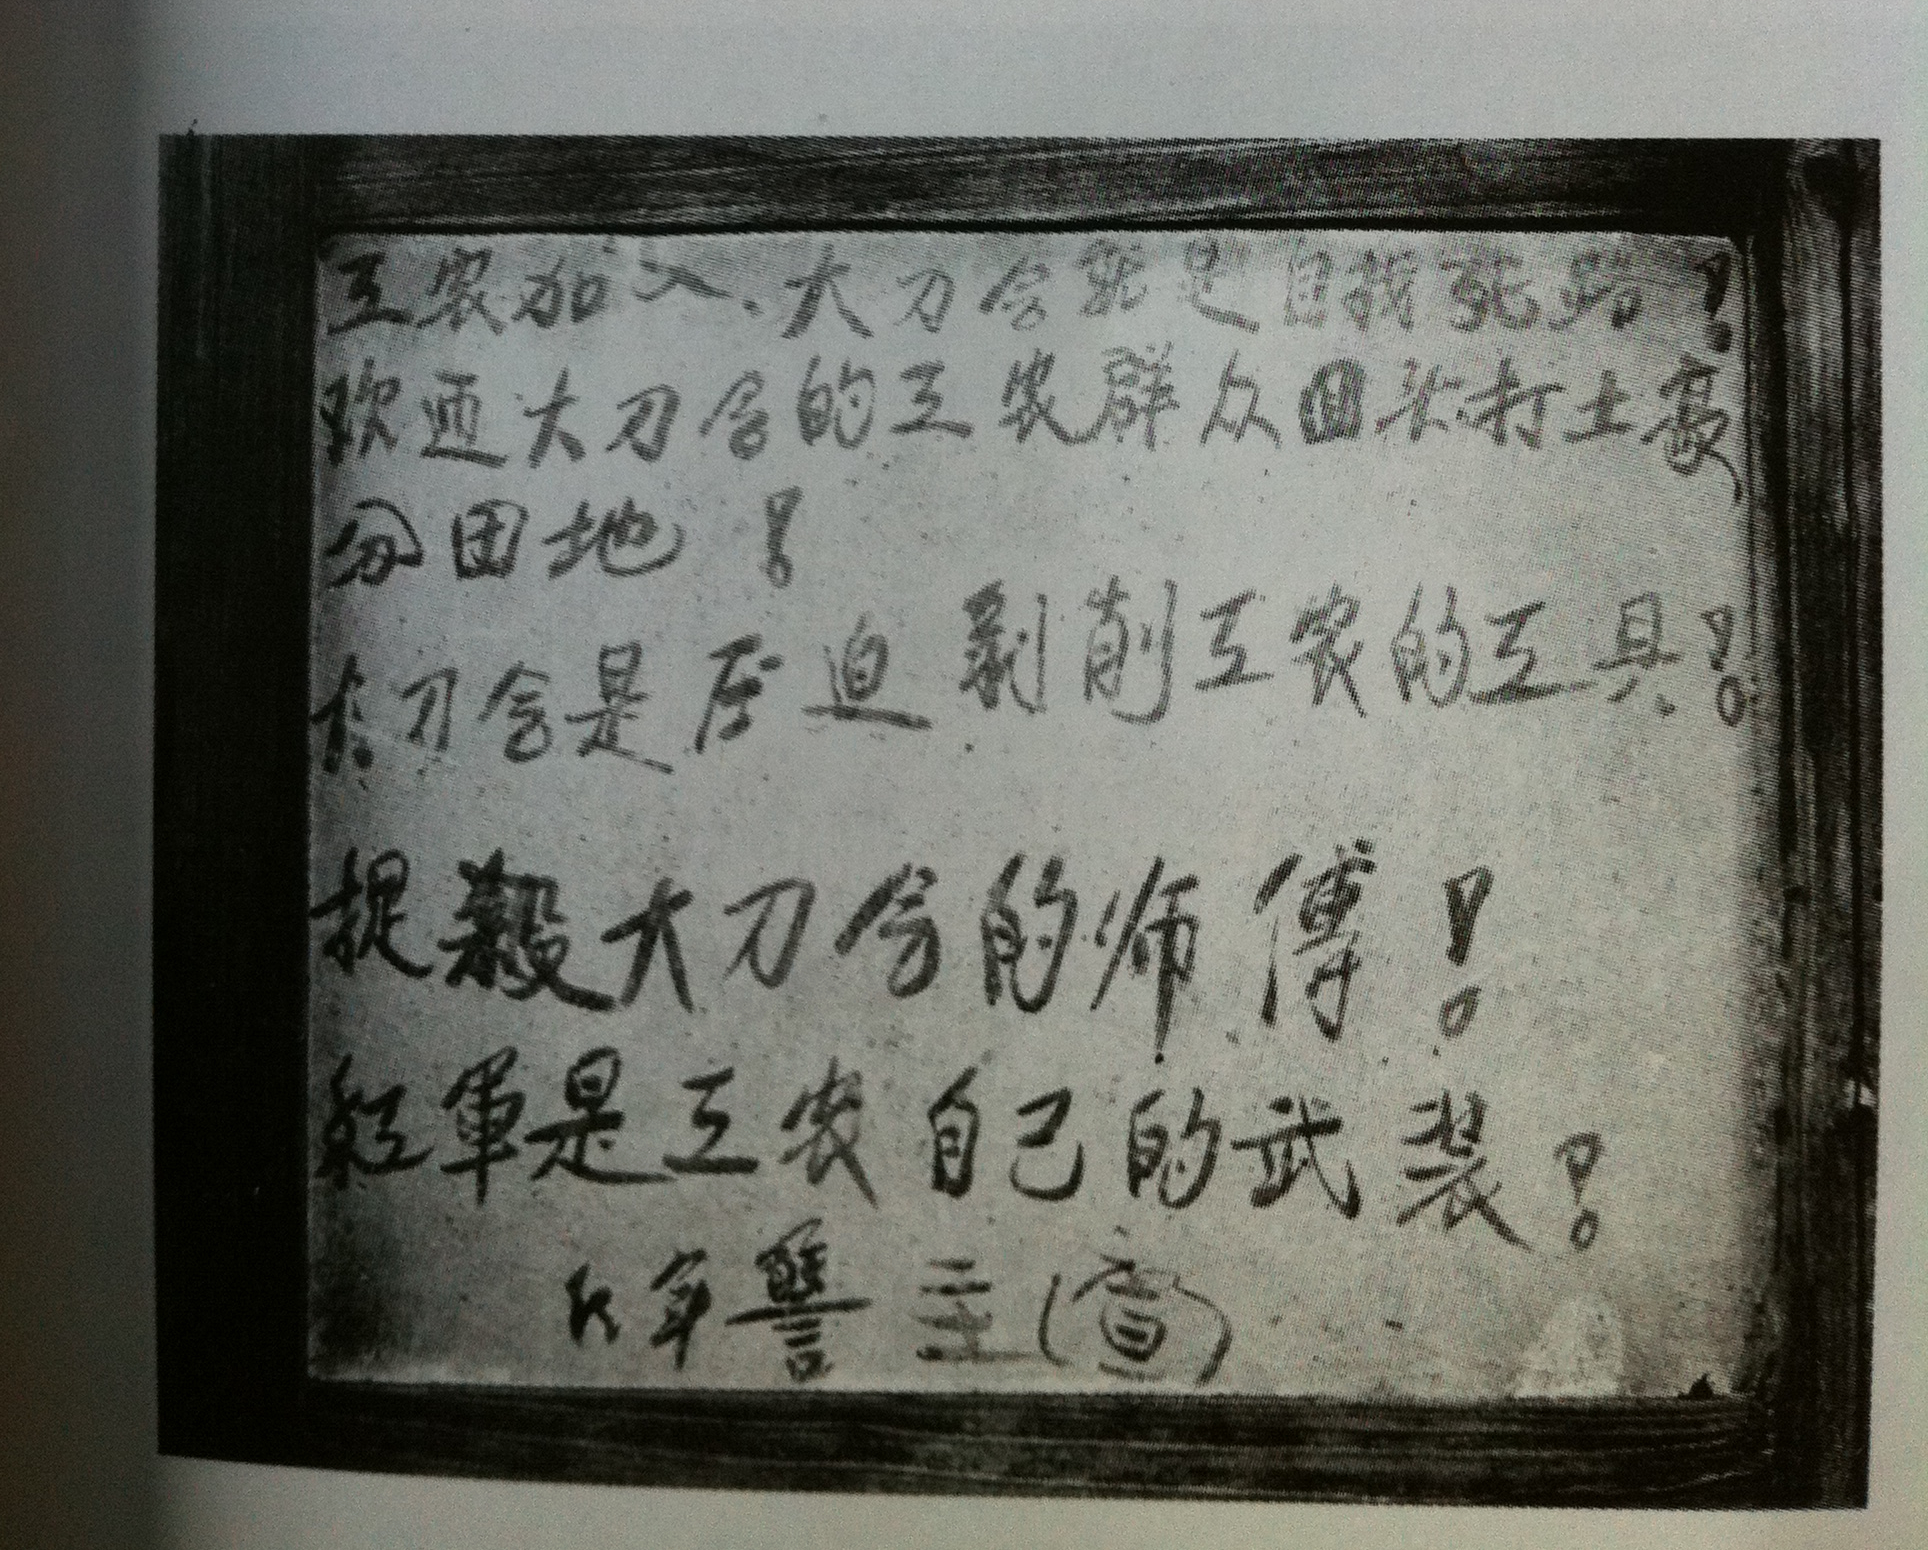 工农加入、大刀会就是自找死路!
欢迎大刀会的工农群众回头打土豪
分田地!
大刀会是压迫剥削工农的工具!
捉殺大刀会的师傅!
紅軍是工农自己的武装!
红军警 (宣)